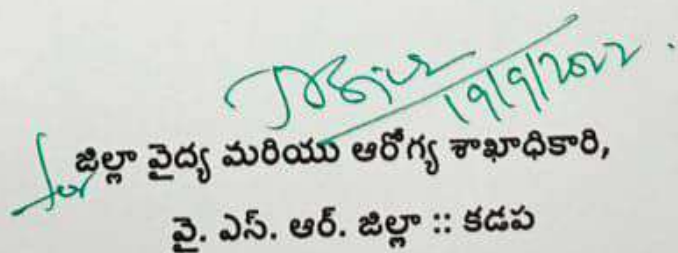 19/9/2022.
for జిల్లా వైద్య మరియు ఆరోగ్య శాఖాధికారి,
వై. ఎస్. ఆర్. జిల్లా :: కడప